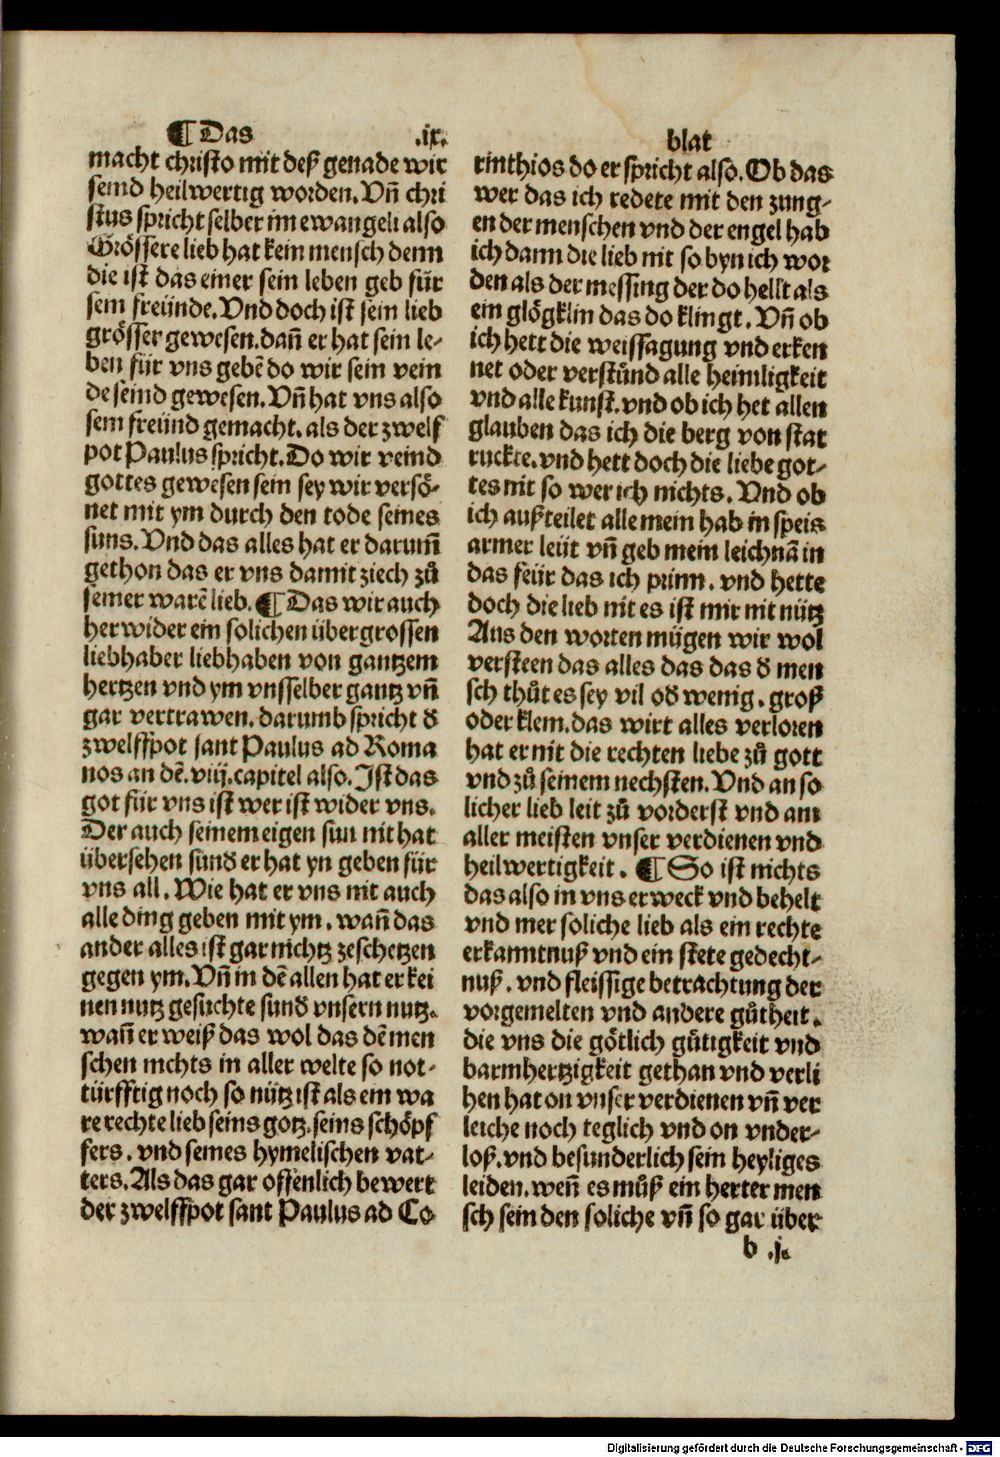 ¶ Das .ix. blat
macht christo mit deß genade wir
seind heilwertig worden. Vñ chri
stus spricht selber im ewangeli also
Grössere lieb hat kein mensch denn
die ist das einer sein leben geb für
sein freünde. Vnd doch ist sein lieb
grösser gewesen. dañ er hat sein le⸗
ben für vns gebē do wir sein vein
de seind gewesen. Vñ hat vns also
sein freünd gemacht. als der zwelf
pot Paulus spricht. Do wir veind
gottes gewesen sein sey wir versö⸗
net mit ym durch den tode seines
suns. Vnd das alles hat er darum̄
gethon das er vns damit ziech zů
seiner warē lieb. ¶ Das wir auch
herwider ein solichen übergrossen
liebhaber liebhaben von gantzem
hertzen vnd ym vnsselber gantz vñ
gar vertrawen. darumb spricht d̕
zwelffpot sant Paulus ad Roma
nos an dē. viij. capitel also. Ist das
got für vns ist wer ist wider vns.
Der auch seinem eigen sun nit hat
übersehen sund̕ er hat yn geben für
vns all. Wie hat er vns nit auch
alle ding geben mit ym. wañ das
ander alles ist gar nichtz zeschetzen
gegen ym. Vñ in dē allen hat er kei
nen nutz gesuchte sund̕ vnsern nutz.
wañ er weiß das wol das dē men
schen nichts in aller welte so not⸗
türfftig noch so nütz ist als ein wa
re rechte lieb seins gotz. seins schöpf
fers. vnd seines hymelischen vat⸗
ters. Als das gar offenlich bewert
der zwelffpot sant Paulus ad Co
rinthios do er spricht also. Ob das
wer das ich redete mit den zung⸗
en der menschen vnd der engel hab
ich dann die lieb nit so byn ich wor
den als der messing der do hellt als
ein glögklin das do klingt. Vñ ob
ich hett die weissagung vnd erken
net oder verstünd alle heimligkeit
vnd alle kunst. vnd ob ich het allen
glauben das ich die berg von stat
ruckte. vnd hett doch die liebe got⸗
tes nit so wer ich nichts. Vnd ob
ich außteilet alle mein hab in speis
armer leüt vñ geb mein leichnā in
das feür das ich prinn. vnd hette
doch die lieb nit es ist mir nit nütz
Aus den worten mügen wir wol
versteen das alles das das d̕ men
sch thůt es sey vil od̕ wenig. groß
oder klein. das wirt alles verloren
hat er nit die rechten liebe zů gott
vnd zů seinem nechsten. Vnd an so
licher lieb leit zů vorderst vnd am
aller meisten vnser verdienen vnd
heilwertigkeit. ¶ So ist nichts
das also in vns erweck vnd behelt
vnd mer soliche lieb als ein rechte
erkanntnuß vnd ein stete gedecht⸗
nuß. vnd fleissige betrachtung der
vorgemelten vnd andere gůtheit.
die vns die götlich gütigkeit vnd
barmhertzigkeit gethan vnd verli
hen hat on vnser verdienen vñ ver
leiche noch teglich vnd on vnder⸗
loß. vnd besunderlich sein heyliges
leiden. weñ es můß ein herter men
sch sein den soliche vñ so gar über
b .j.
Digitalisierung gefördert durch die Deutsche Forschungsgemeinschaft - DFG